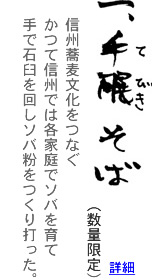 一、手碾そば
てびき
（数量限定）
詳細
信州蕎麦文化をつなぐ
かつて信州では各家庭でソバを育て
手で石臼を回しソバ粉をつくり打った。